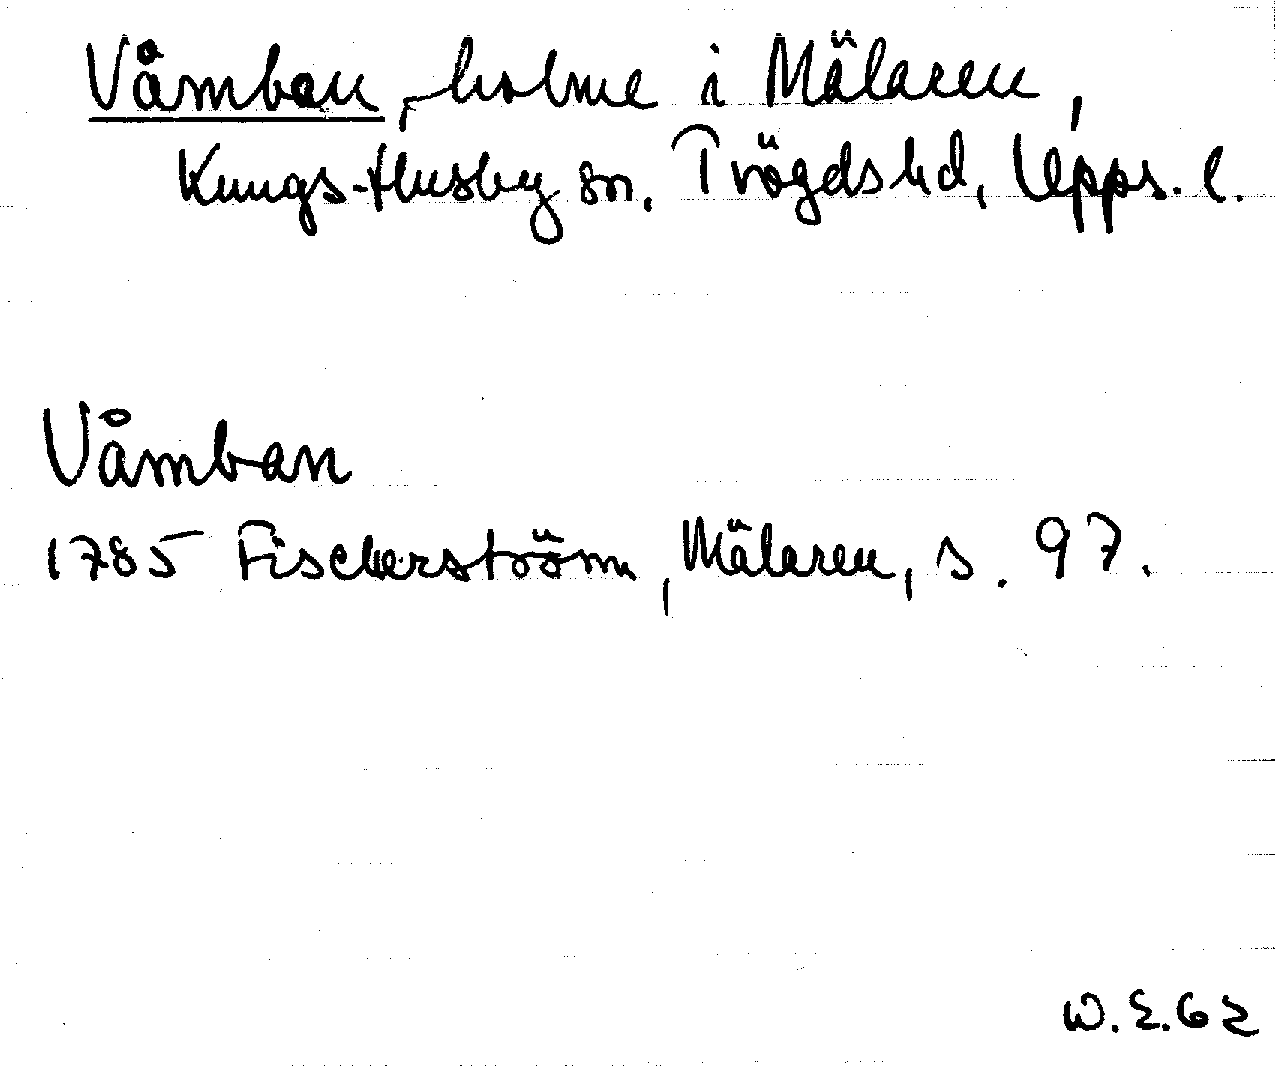 Våmban, holme i Mälaren,
Kungs-Husby sn. Trögds hd, Upps. l.
Våmban
1785 Fischerström, Mälaren, s. 97.
W.E.62